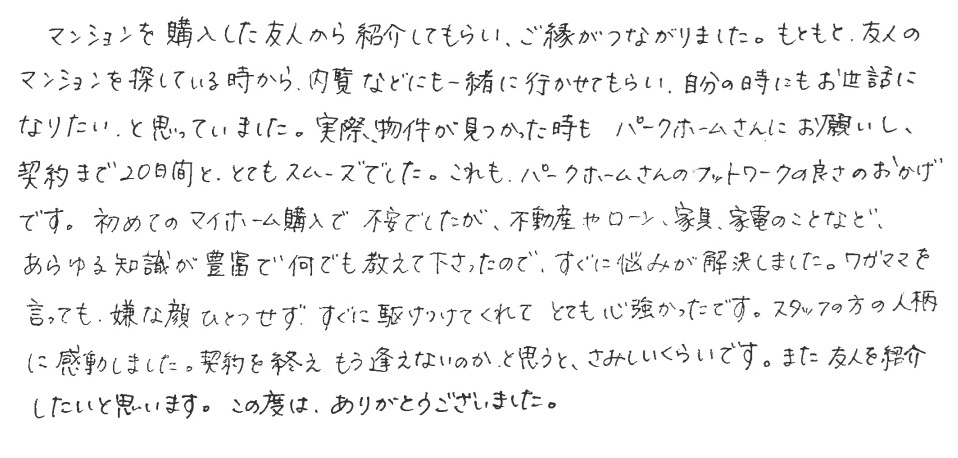 マンションを購入した友人から紹介してもらい、ご縁がつながりました。もともと、友人の
マンションを探している時から、内覧などにも一緒に行かせてもらい、自分の時にもお世話に
なりたい、と思っていました。実際、物件が見つかった時も パークホームさんにお願いし、
契約まで20日間と、とてもスムーズでした。これも、パークホームさんのフットワークの良さのおかげ
です。初めてのマイホーム購入で 不安でしたが、不動産やローン、家具、家電のことなど、
あらゆる知識が豊富で何でも教えて下さったので、すぐに悩みが解決しました。ワガママを
言っても、嫌な顔ひとつせず、すぐに駆けつけてくれて とても心強かったです。スタッフの方の人柄
に感動しました。契約を終え もう逢えないのか、と思うと、さみしいくらいです。また友人を紹介
したいと思います。この度は、ありがとうございました。